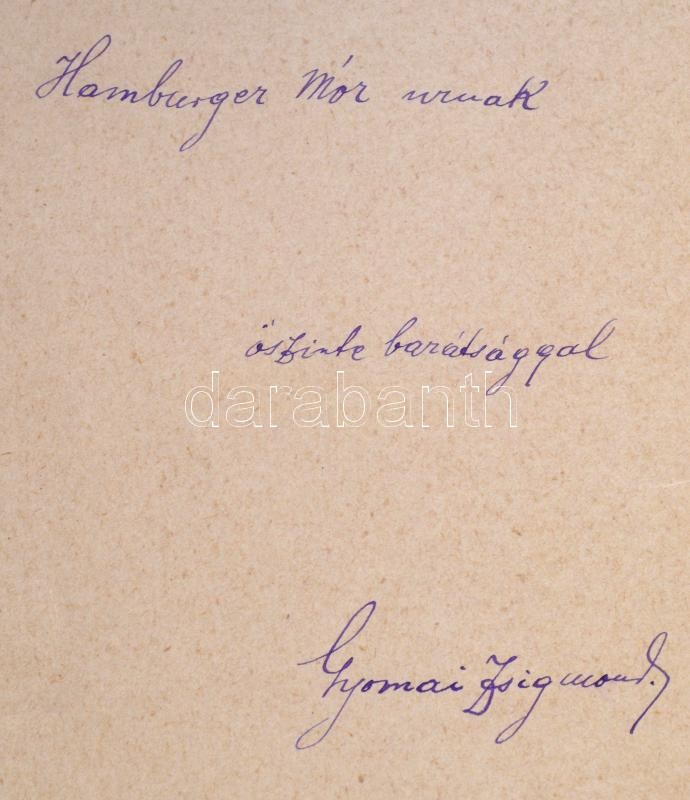 Hamburger Mór urnak
őszinte barátsággal
darabanth
Gyomai Zsigmond.